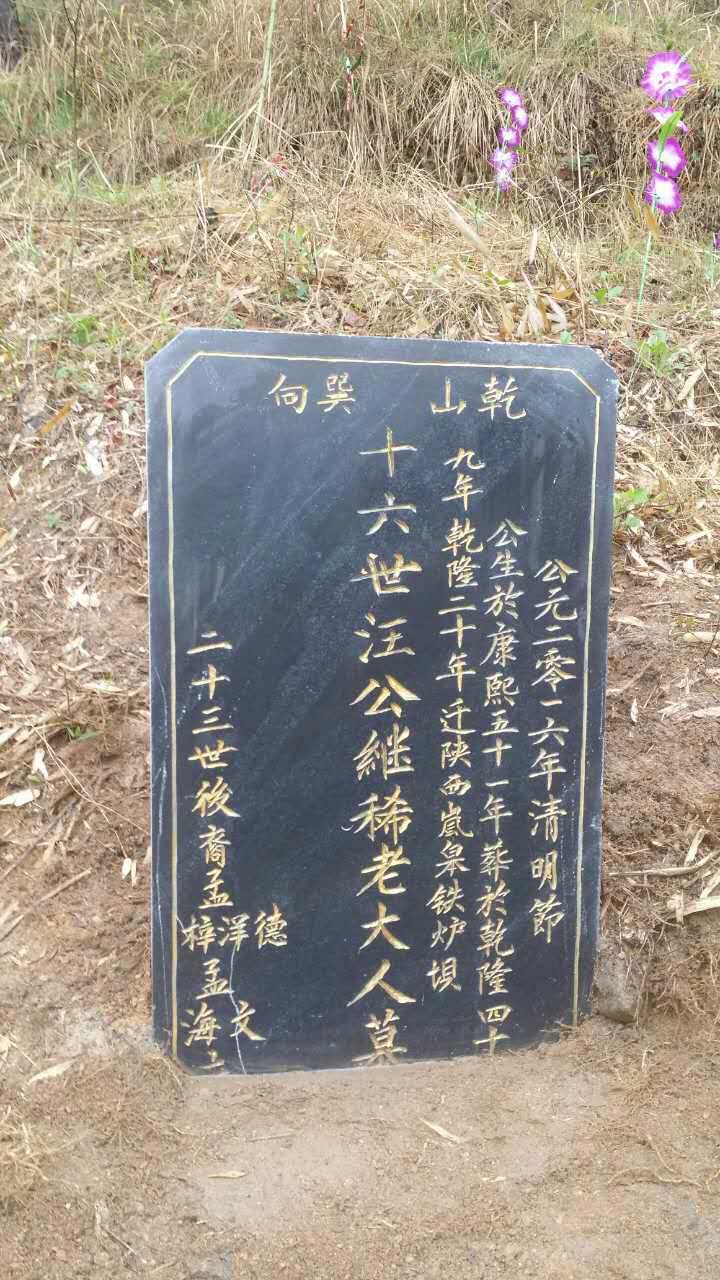 乾山 巽向
公元二零一六年清明節
公生於康熙五十一年葬於乾隆四十
九年乾隆二十年迁陕西嵐皋铁炉垻
十六世汪公継稀老大人墓
二十三世後裔孟
德洋梓
孟
文海